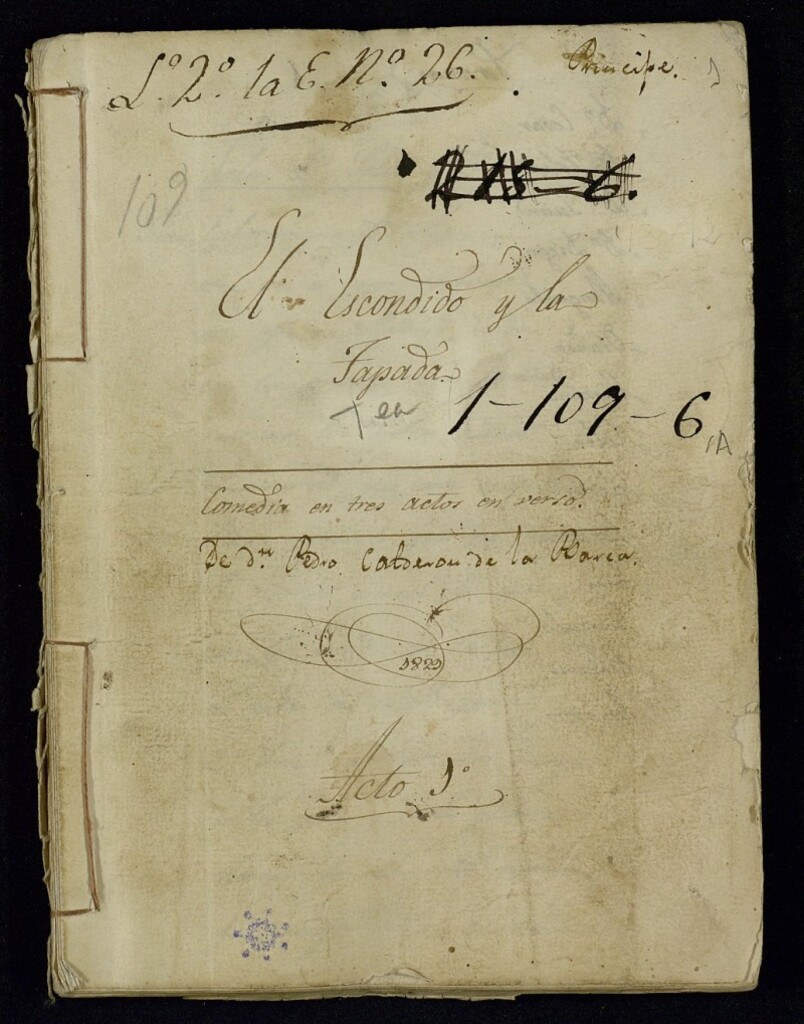 L.º 2.º la E. N.º 26.
Principe.
109
El Escondido y la
Tapada.
1-109-6
A
Comedia en tres actos en verso.
De d.n Pedro Calderon de la Barca.
1821
Acto 1º